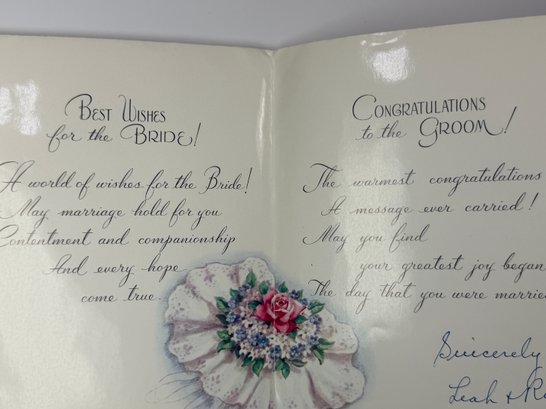 BEST WISHES
for the BRIDE!
A world of wishes for the Bride!
May marriage hold for you
Contentment and companionship
And every hope
come true.
CONGRATULATIONS
to the GROOM!
The warmest congratulations
A message ever carried!
May you find
your greatest joy began
The day that you were married
Sincerely
Leah &